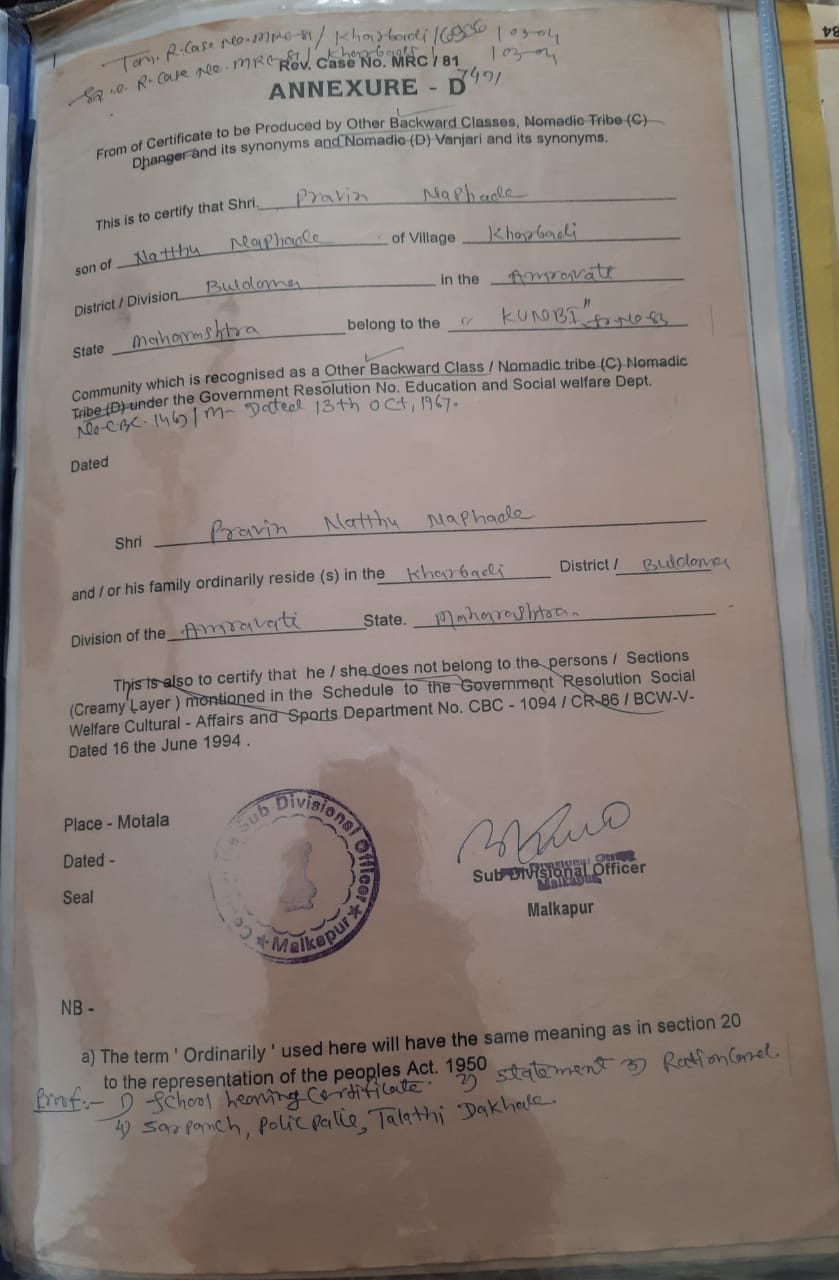 Tom. R. Case No. MRC-81 / Kharbadi / 103-04
S.D.O. R. Case No. MRC-81 / Kharbadi / 103-04
Rev. Case No. MRC / 81
7471
ANNEXURE - D
From of Certificate to be Produced by Other Backward Classes, Nomadic Tribe (C)
Dhanger and its synonyms and Nomadic (D) Vanjari and its synonyms.
This is to certify that Shri. Pravin Naphade
son of Natthu Naphade of Village Kharbadi
District / Division Buldana in the Amravati
State Maharashtra belong to the "KUNOBI" Sr No 83
Community which is recognised as a Other Backward Class / Nomadic tribe (C) Nomadic
Tribe (D) under the Government Resolution No. Education and Social welfare Dept.
No-CBC-1467/M- Dated 13th Oct, 1967.
Dated
Shri Pravin Natthu Naphade
and / or his family ordinarily reside (s) in the Kharbadi District / Buldana
Division of the Amravati State. Maharashtra.
This is also to certify that he / she does not belong to the persons / Sections
(Creamy Layer ) montioned in the Schedule to the Government Resolution Social
Welfare Cultural - Affairs and Sports Department No. CBC - 1094 / CR-86 / BCW-V-
Dated 16 the June 1994 .
Place - Motala
Dated -
Seal
Sub Divisional Officer
★ Malkapur ★
Sub Divisional Officer
Malkapur
Sub Divisional Officer
Malkapur
NB -
a) The term ' Ordinarily ' used here will have the same meaning as in section 20
to the representation of the peoples Act. 1950
Proof:- 1) School Leaving Certificate. 2) Statement 3) Rationcard.
4) Sarpanch, Polic Patie, Talathi Dakhale.
84